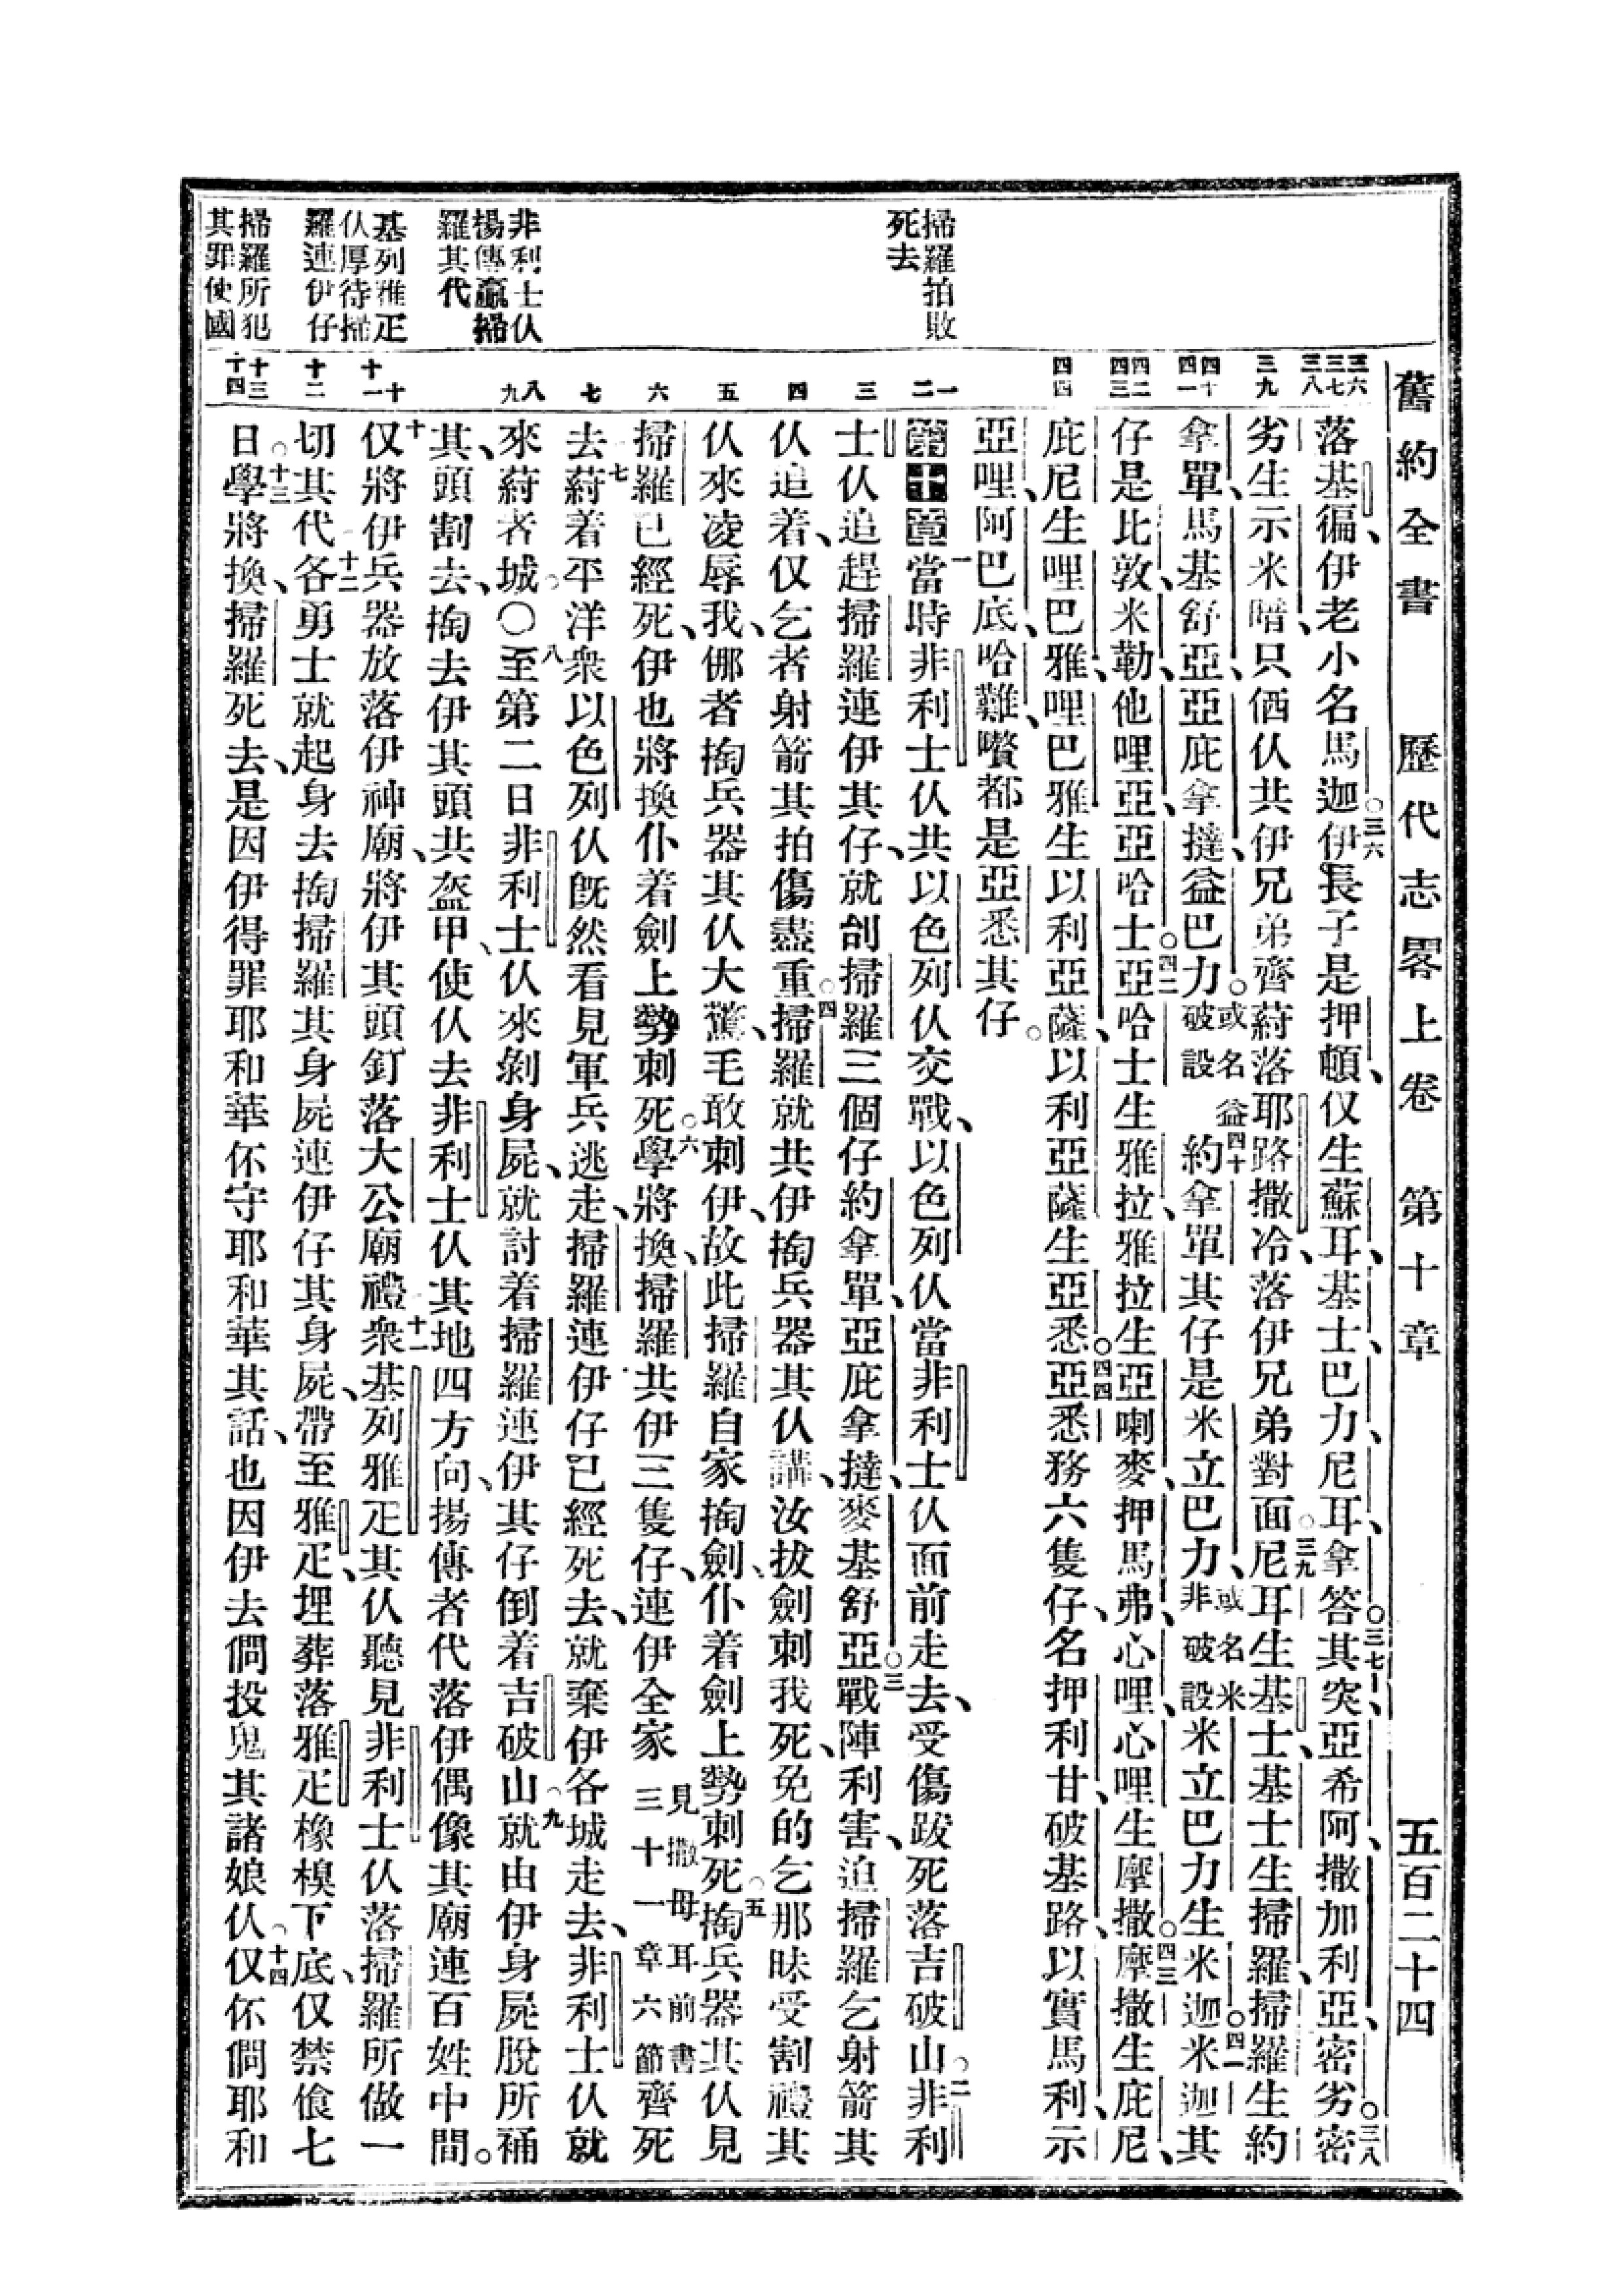 舊約全書 歷代志畧上卷 第十章 五百二十四
掃羅拍敗
死去
非利士仈
揚傳贏掃
羅其代
基列雅疋
仈厚待掃
羅連伊仔
掃羅所犯
其罪使國
三六 三七 三八 三九 四十 四一 四二 四三 四四 一 二 三 四 五 六 七 八 九 十 十一 十二 十三 十四
落基徧、伊老小名馬迦。○三六伊長子是押頓、仅生蘇耳、基士、巴力、尼耳、拿答、○三七其突、亞希阿、撒加利亞、密劣。○三八密
劣生示米暗、只仈仈共伊兄弟齊蔚落耶路撒冷、落伊兄弟對面。○三九尼耳生基士、基士生掃羅、掃羅生約
拿單、馬基舒亞、亞庇拿撻、益巴力。○或名益破設 四十約拿單其仔是米立巴力、或名米非破設米立巴力生米迦。○四一米迦其
仔是比敦、米勒、他哩亞、亞哈士。○四二亞哈士生雅拉、雅拉生亞喇麥、押馬弗、心哩、心哩生摩撒。○四三摩撒生庇尼、
庇尼生哩巴雅、哩巴雅生以利亞薩、以利亞薩生亞悉。○四四亞悉務六隻仔、名押利甘、破基路、以實馬利、示
亞哩、阿巴底、哈難、嚽都是亞悉其仔。
第十章 一當時非利士仈共以色列仈交戰、以色列仈當非利士仈面前走去、受傷跋死落吉破山。二非利
士仈追趕掃羅連伊其仔、就刣掃羅三個仔約拿單、亞庇拿撻、麥基舒亞。○三戰陣利害、迫掃羅乞射箭其
仈追着、仅乞者射箭其拍傷盡重。○四掃羅就共伊掏兵器其仈講、汝拔劍刺我死、免的乞那昧受割禮其
仈來凌辱我、倻者掏兵器其仈大驚、毛敢刺伊、故此掃羅自家掏劍、仆着劍上勢刺死。○五掏兵器其仈見
掃羅已經死、伊也將換仆着劍上勢刺死。○六學將換、掃羅共伊三隻仔、連伊全家見撒母耳前書三十一章六節齊死
去。七蔚着平洋衆以色列仈旣然看見軍兵逃走、掃羅連伊仔已經死去、就棄伊各城走去、非利士仈就
來蔚者城。○八至第二日非利士仈來剝身屍、就討着掃羅連伊其仔倒着吉破山。九就由伊身屍脫所䘄
其、頭割去、掏去伊其頭共盔甲、使仈去非利士仈其地四方向、揚傳者代落伊偶像其廟連百姓中間。
十仅將伊兵器放落伊神廟、將伊其頭釘落大公廟禮。十一衆基列雅疋其仈聽見非利士仈落掃羅所做一
切其代、十二各勇士就起身去掏掃羅其身屍連伊仔其身屍、帶至雅疋、埋葬落雅疋橡樉下底、仅禁飧七
日。○十三學將換、掃羅死去、是因伊得罪耶和華、伓守耶和華其話、也因伊去僩投鬼其諸娘仈、十四仅伓僩耶和